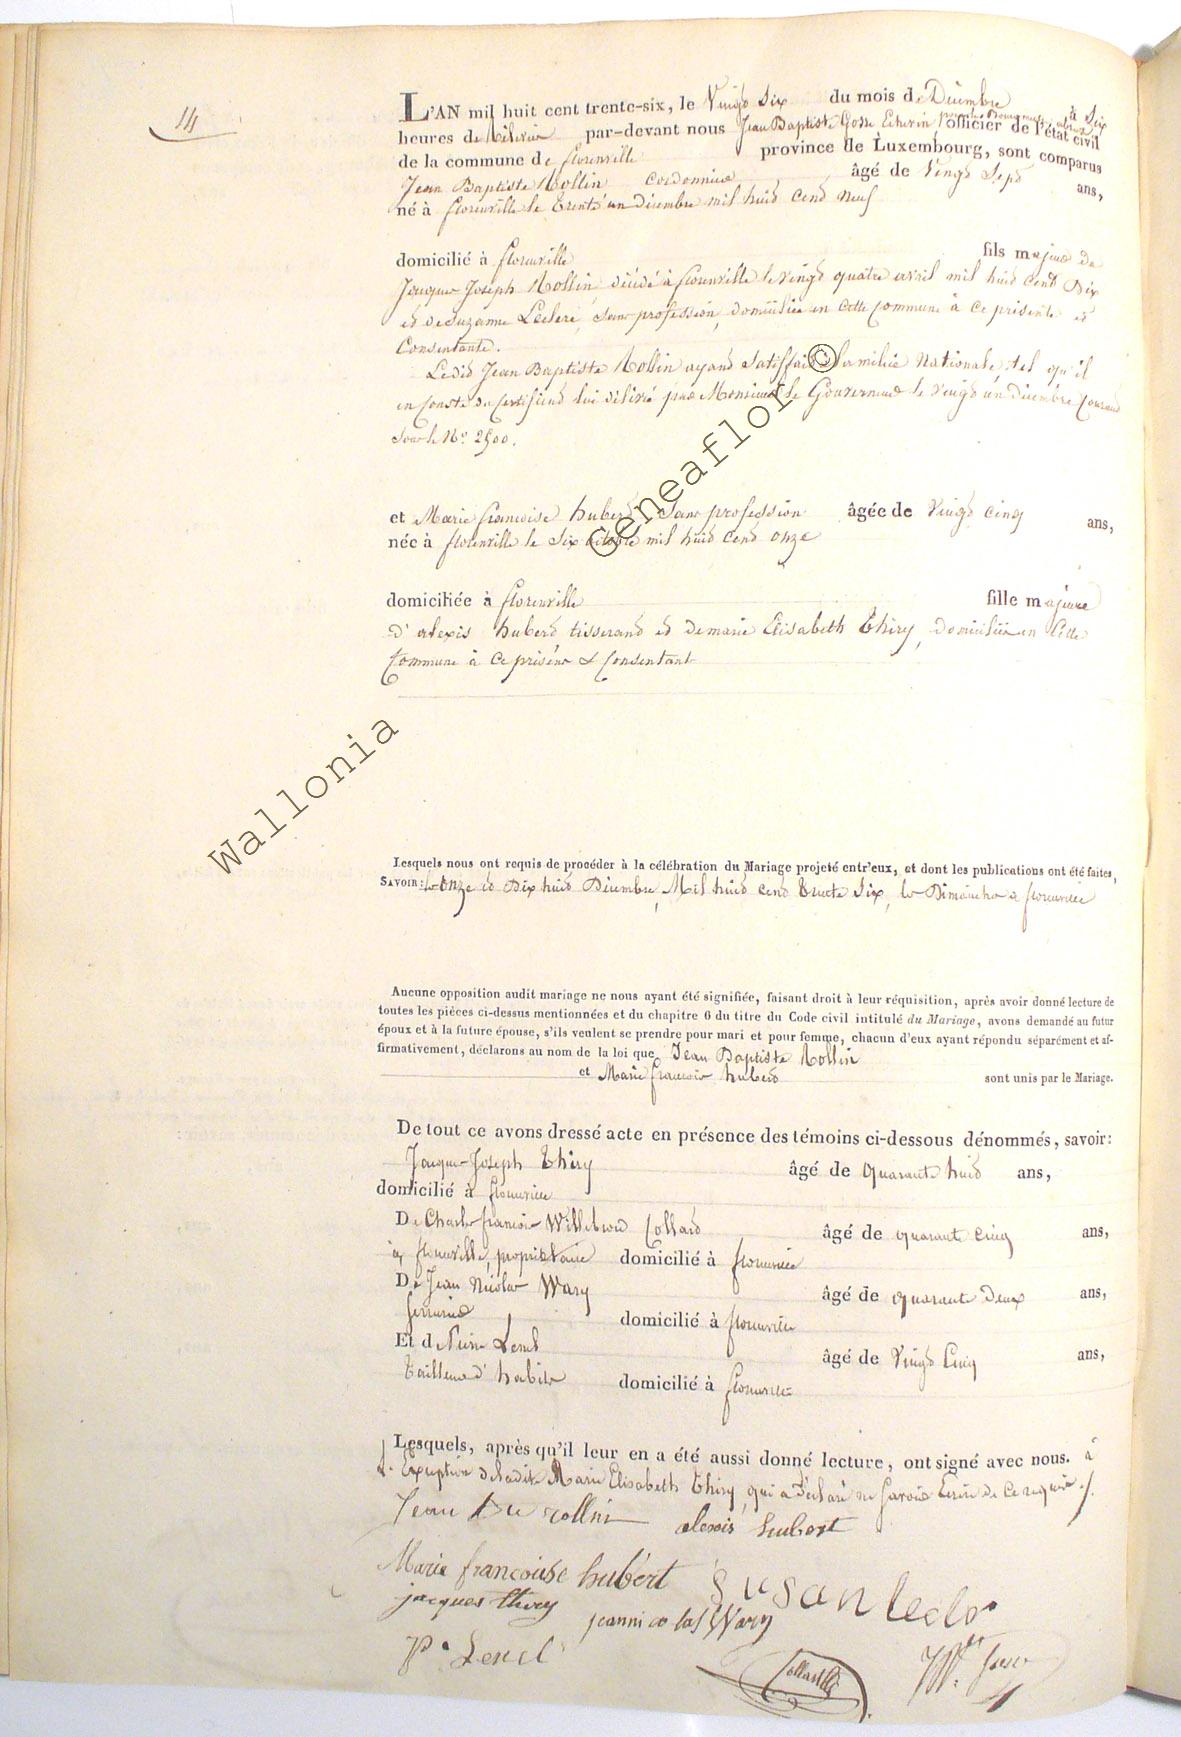 14
L'AN mil huit cent trente-six, le Vingt Six du mois de Décembre à Six
heures de Relevée par-devant nous Jean Baptiste Gosse Echevin officier de l'état civil
de la commune de florenville province de Luxembourg, sont comparus
Jean Baptiste Rollin cordonnier âgé de Vingt Sept ans,
né à florenville le trente un décembre mil huit cent neuf
domicilié à florenville fils majeur de
Jacques Joseph Rollin, décédé à florenville le vingt quatre avril mil huit cent Dix
et de Suzanne Leclere, Sans profession, domiciliée en cette Commune à ce présente et
Consentante.
Ledit Jean Baptiste Rollin ayant Satisfait à la milice Nationale, tel qu'il
en Conste du Certificat lui délivré par Monsieur le Gouverneur le vingt un décembre Courant
Sous le No. 2500.
et Marie françoise hubert Sans profession âgée de Vingt Cinq ans,
née à florenville le Six octobre mil huit cent onze
domiciliée à florenville fille majeure
d'alexis hubert tisserand et de marie Elisabeth Thiry, domiciliés en Cette
Commune à ce présens & Consentant
Lesquels nous ont requis de procéder à la célébration du Mariage projeté entr'eux, et dont les publications ont été faites,
SAVOIR: les Onze et Dix huit Décembre, Mil huit cent trente Six, les Dimanches à florenville
Aucune opposition audit mariage ne nous ayant été signifiée, faisant droit à leur réquisition, après avoir donné lecture de
toutes les pièces ci-dessus mentionnées et du chapitre 6 du titre du Code civil intitulé du Mariage, avons demandé au futur
époux et à la future épouse, s'ils veulent se prendre pour mari et pour femme, chacun d'eux ayant répondu séparément et af-
firmativement, déclarons au nom de la loi que Jean Baptiste Rollin
et Marie françoise hubert sont unis par le Mariage.
De tout ce avons dressé acte en présence des témoins ci-dessous dénommés, savoir:
Jacques Joseph Thiry âgé de quarante huit ans,
domicilié à florenville
De Charles françois Willebrord Collard âgé de quarante cinq ans,
à florenville, propriétaire domicilié à florenville
De Jean Nicolas Wary âgé de quarante Deux ans,
Serrurier domicilié à florenville
Et de Pierre âgé de Vingt Cinq ans,
tailleur d'habits domicilié à florenville
Lesquels, après qu'il leur en a été aussi donné lecture, ont signé avec nous. à
L'Exception de ladite Marie Elisabeth Thiry, qui a déclaré ne Savoir Ecrire de Ce requise
Jean Bte rollin alexis hubert
Marie francoise hubert Susan lecler
jacques thiry jeannicolas Wary
Wallonia Geneaflor ©